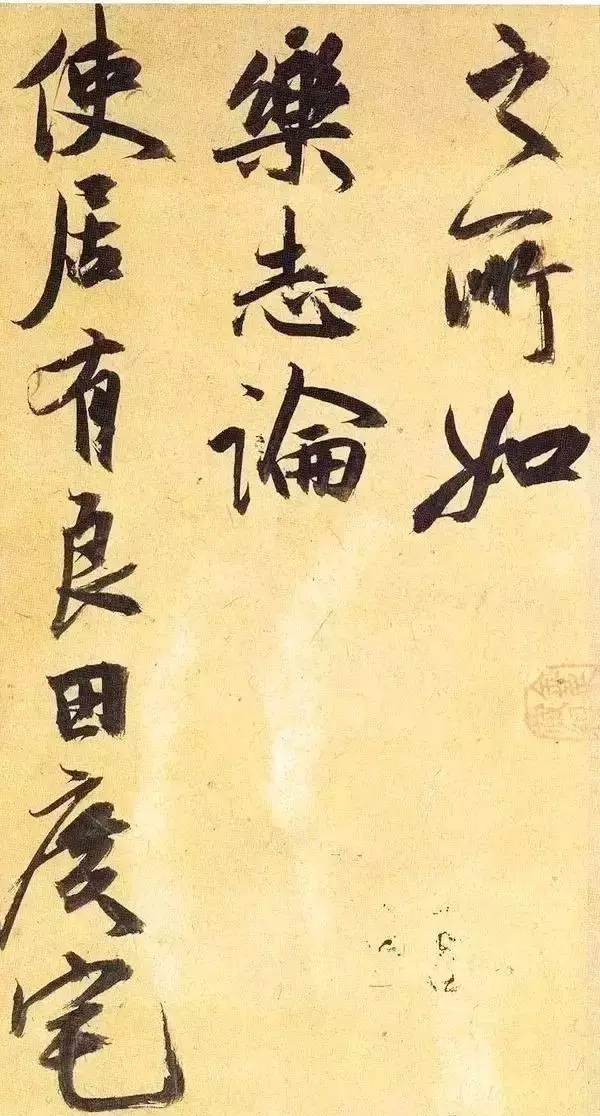 之所如
樂志論
使居有良田廣宅